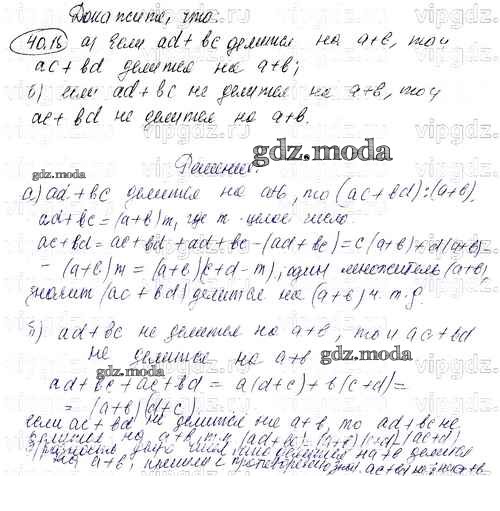 Докажите, что:
40.18 а) Если ad + bc делится на a+b, то и
ac + bd делится на a+b;
б) если ad + bc не делится на a+b, то и
ac + bd не делится на a+b.
gdz.moda
Решение.
а) ad + bc делится на a+b, то (ac+bd):(a+b),
ad+bc = (a+b)m, где m - целое число.
ac+bd = ac+bd+ad+bc-(ad+bc) = c(a+b)+d(a+b)-
-(a+b)m = (a+b)(c+d-m), один множитель (a+b),
значит (ac+bd) делится на (a+b) ч.т.д.
б) ad+bc не делится на a+b, то и ac+bd
не делится на a+b
gdz.moda
ad+bc+ac+bd = a(d+c)+b(c+d)=
= (a+b)(d+c).
если ac+bd не делится на a+b, то ad+bc не
делится на a+b, т.к. (ad+bc)=(a+b)(c+d)-(ac+bd)
разность двух чисел делится на a+b делится
на a+b, пришли к противоречию ac+bd не на a+b